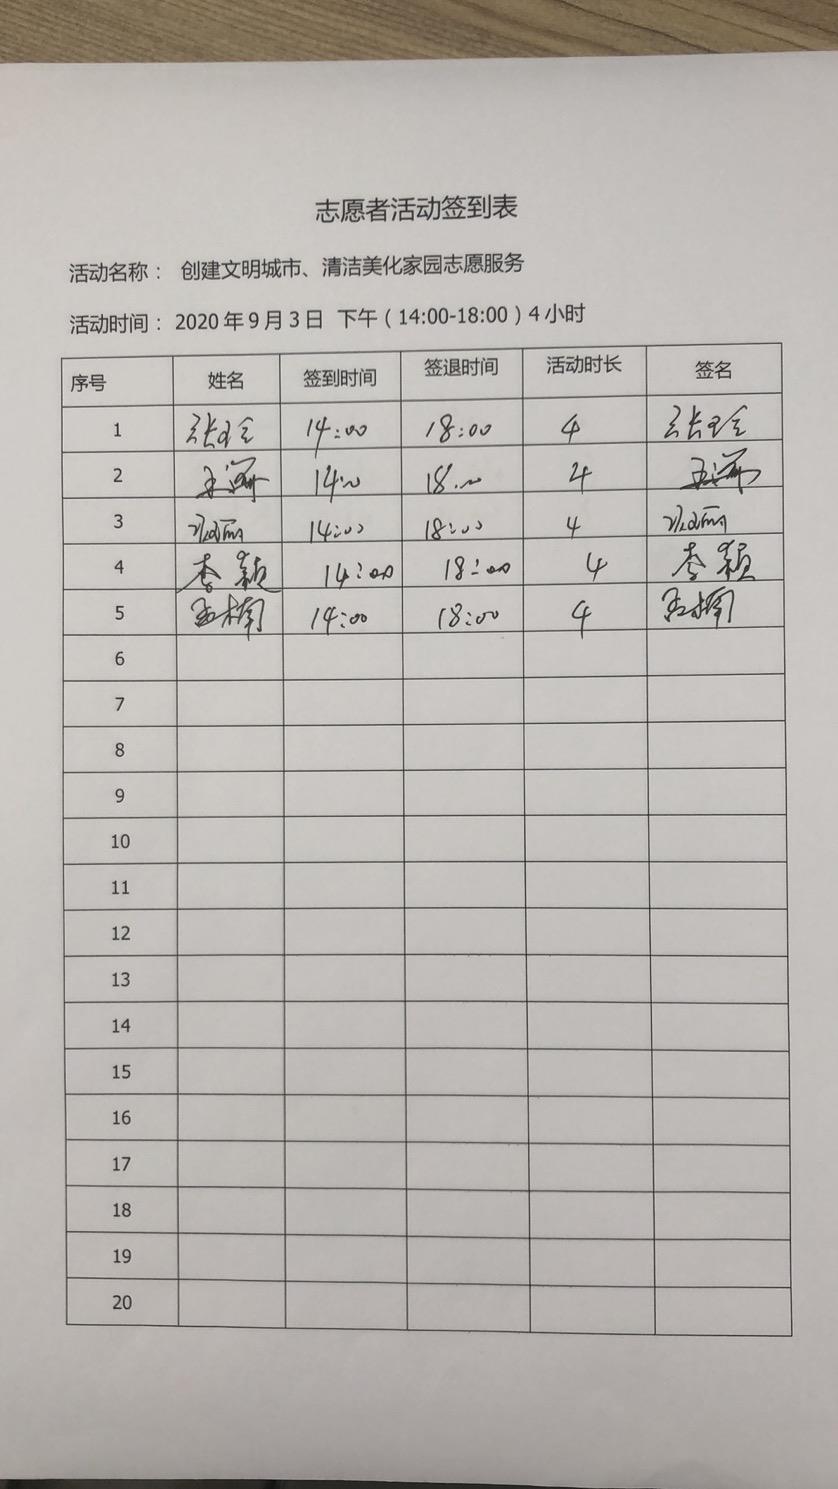 志愿者活动签到表
活动名称： 创建文明城市、清洁美化家园志愿服务
活动时间：2020年9月3日 下午（14:00-18:00）4小时
序号 姓名 签到时间 签退时间 活动时长 签名
1 14:00 18:00 4
2 14:00 18:00 4
3 14:00 18:00 4
4 李颖 14:00 18:00 4 李颖
5 孟楠 14:00 18:00 4 孟楠
6
7
8
9
10
11
12
13
14
15
16
17
18
19
20